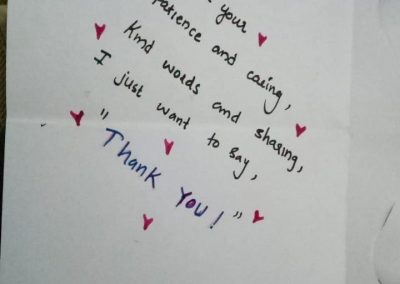 your
patience and caring,
Kind words and sharing,
I just want to say,
"Thank You!"